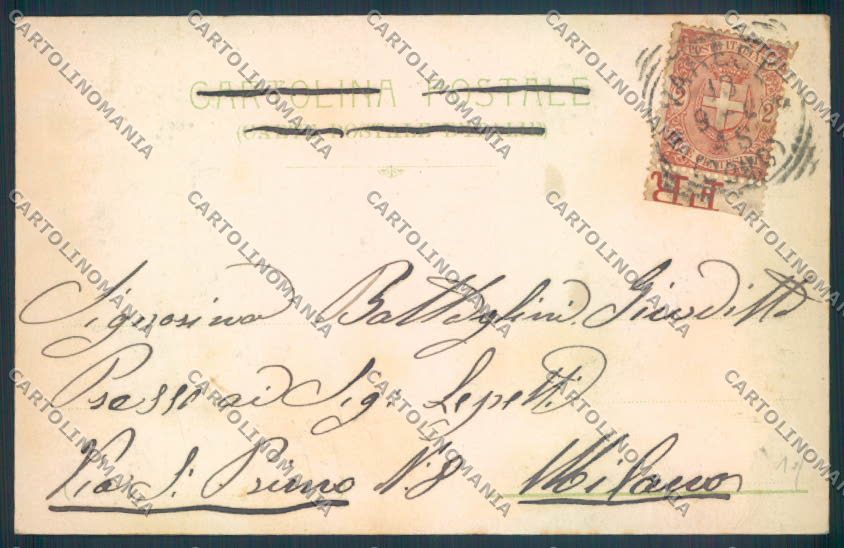 CARTOLINA POSTALE
(CARTE POSTALE D'ITALIE)
POSTE ITALIANE
2
DUE CENTESIMI
Signorina Battaglini Giuditta
Presso ai Sig. Lepetti
Via S. Primo N. 8 Milano
CARTOLINOMANIA